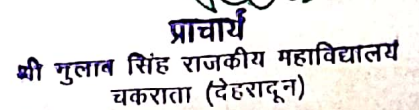 प्राचार्य
श्री गुलाब सिंह राजकीय महाविद्यालय
चकराता (देहरादून)